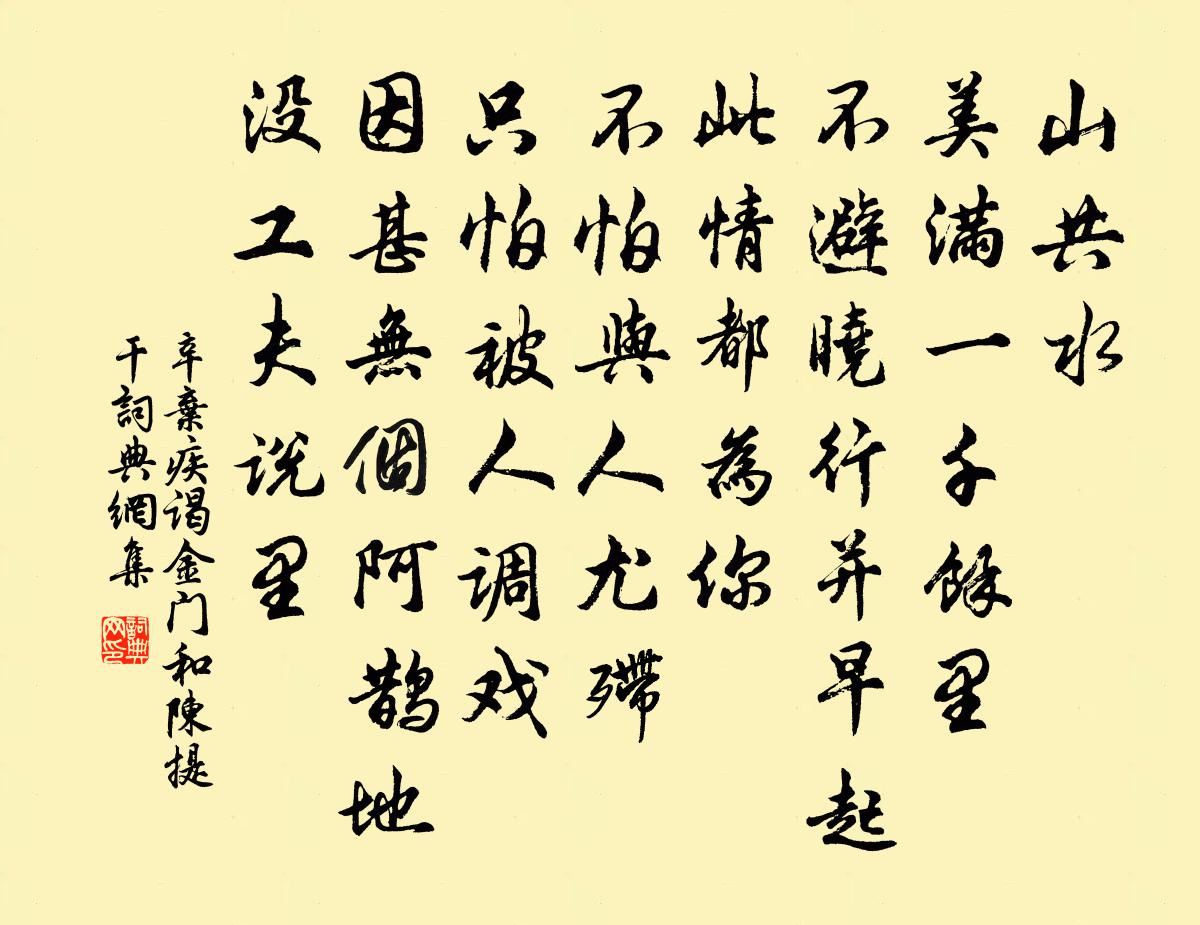 山共水
美满一千餘里
不避曉行并早起
此情都為你
不怕與人尤殢
只怕被人调戏
因甚無個阿鵲地
没工夫说里
辛棄疾谒金门和陳提
干詞典網集
詞典
网印